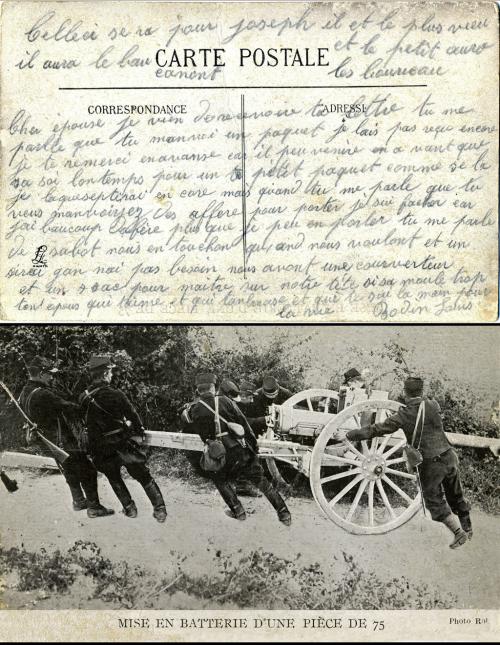 Celleci sera pour joseph il et le plus vieu
il aura le bau canont
et le petit aura
les bourreau
CARTE POSTALE
CORRESPONDANCE
ADRESSE
Cher épouse je vien de recevoire ta lettre tu me
parle que tu manvoi un paquet je lais pas reçu encore
je te remerci en avanse car il peu venire on a vant que
sa soi lontemps pour un petit paquet comme se la
je laquseptirai en core mais quand tu me parle que tu
veus manvoiyez des affere pour porter je sui facher car
jai baucoup dafere plus que je peu en porter tu me parle
de sabot nous en touchon quand nous voulont et un
gan nai pas besoin nous avont une courverteur
et un sac pour maitre sur notre tête si sa moule trop
ton epous qui thème et qui tanbrase et que te sai la main pour
la vie Bodin Louis
MISE EN BATTERIE D'UNE PIÈCE DE 75
Photo Rol